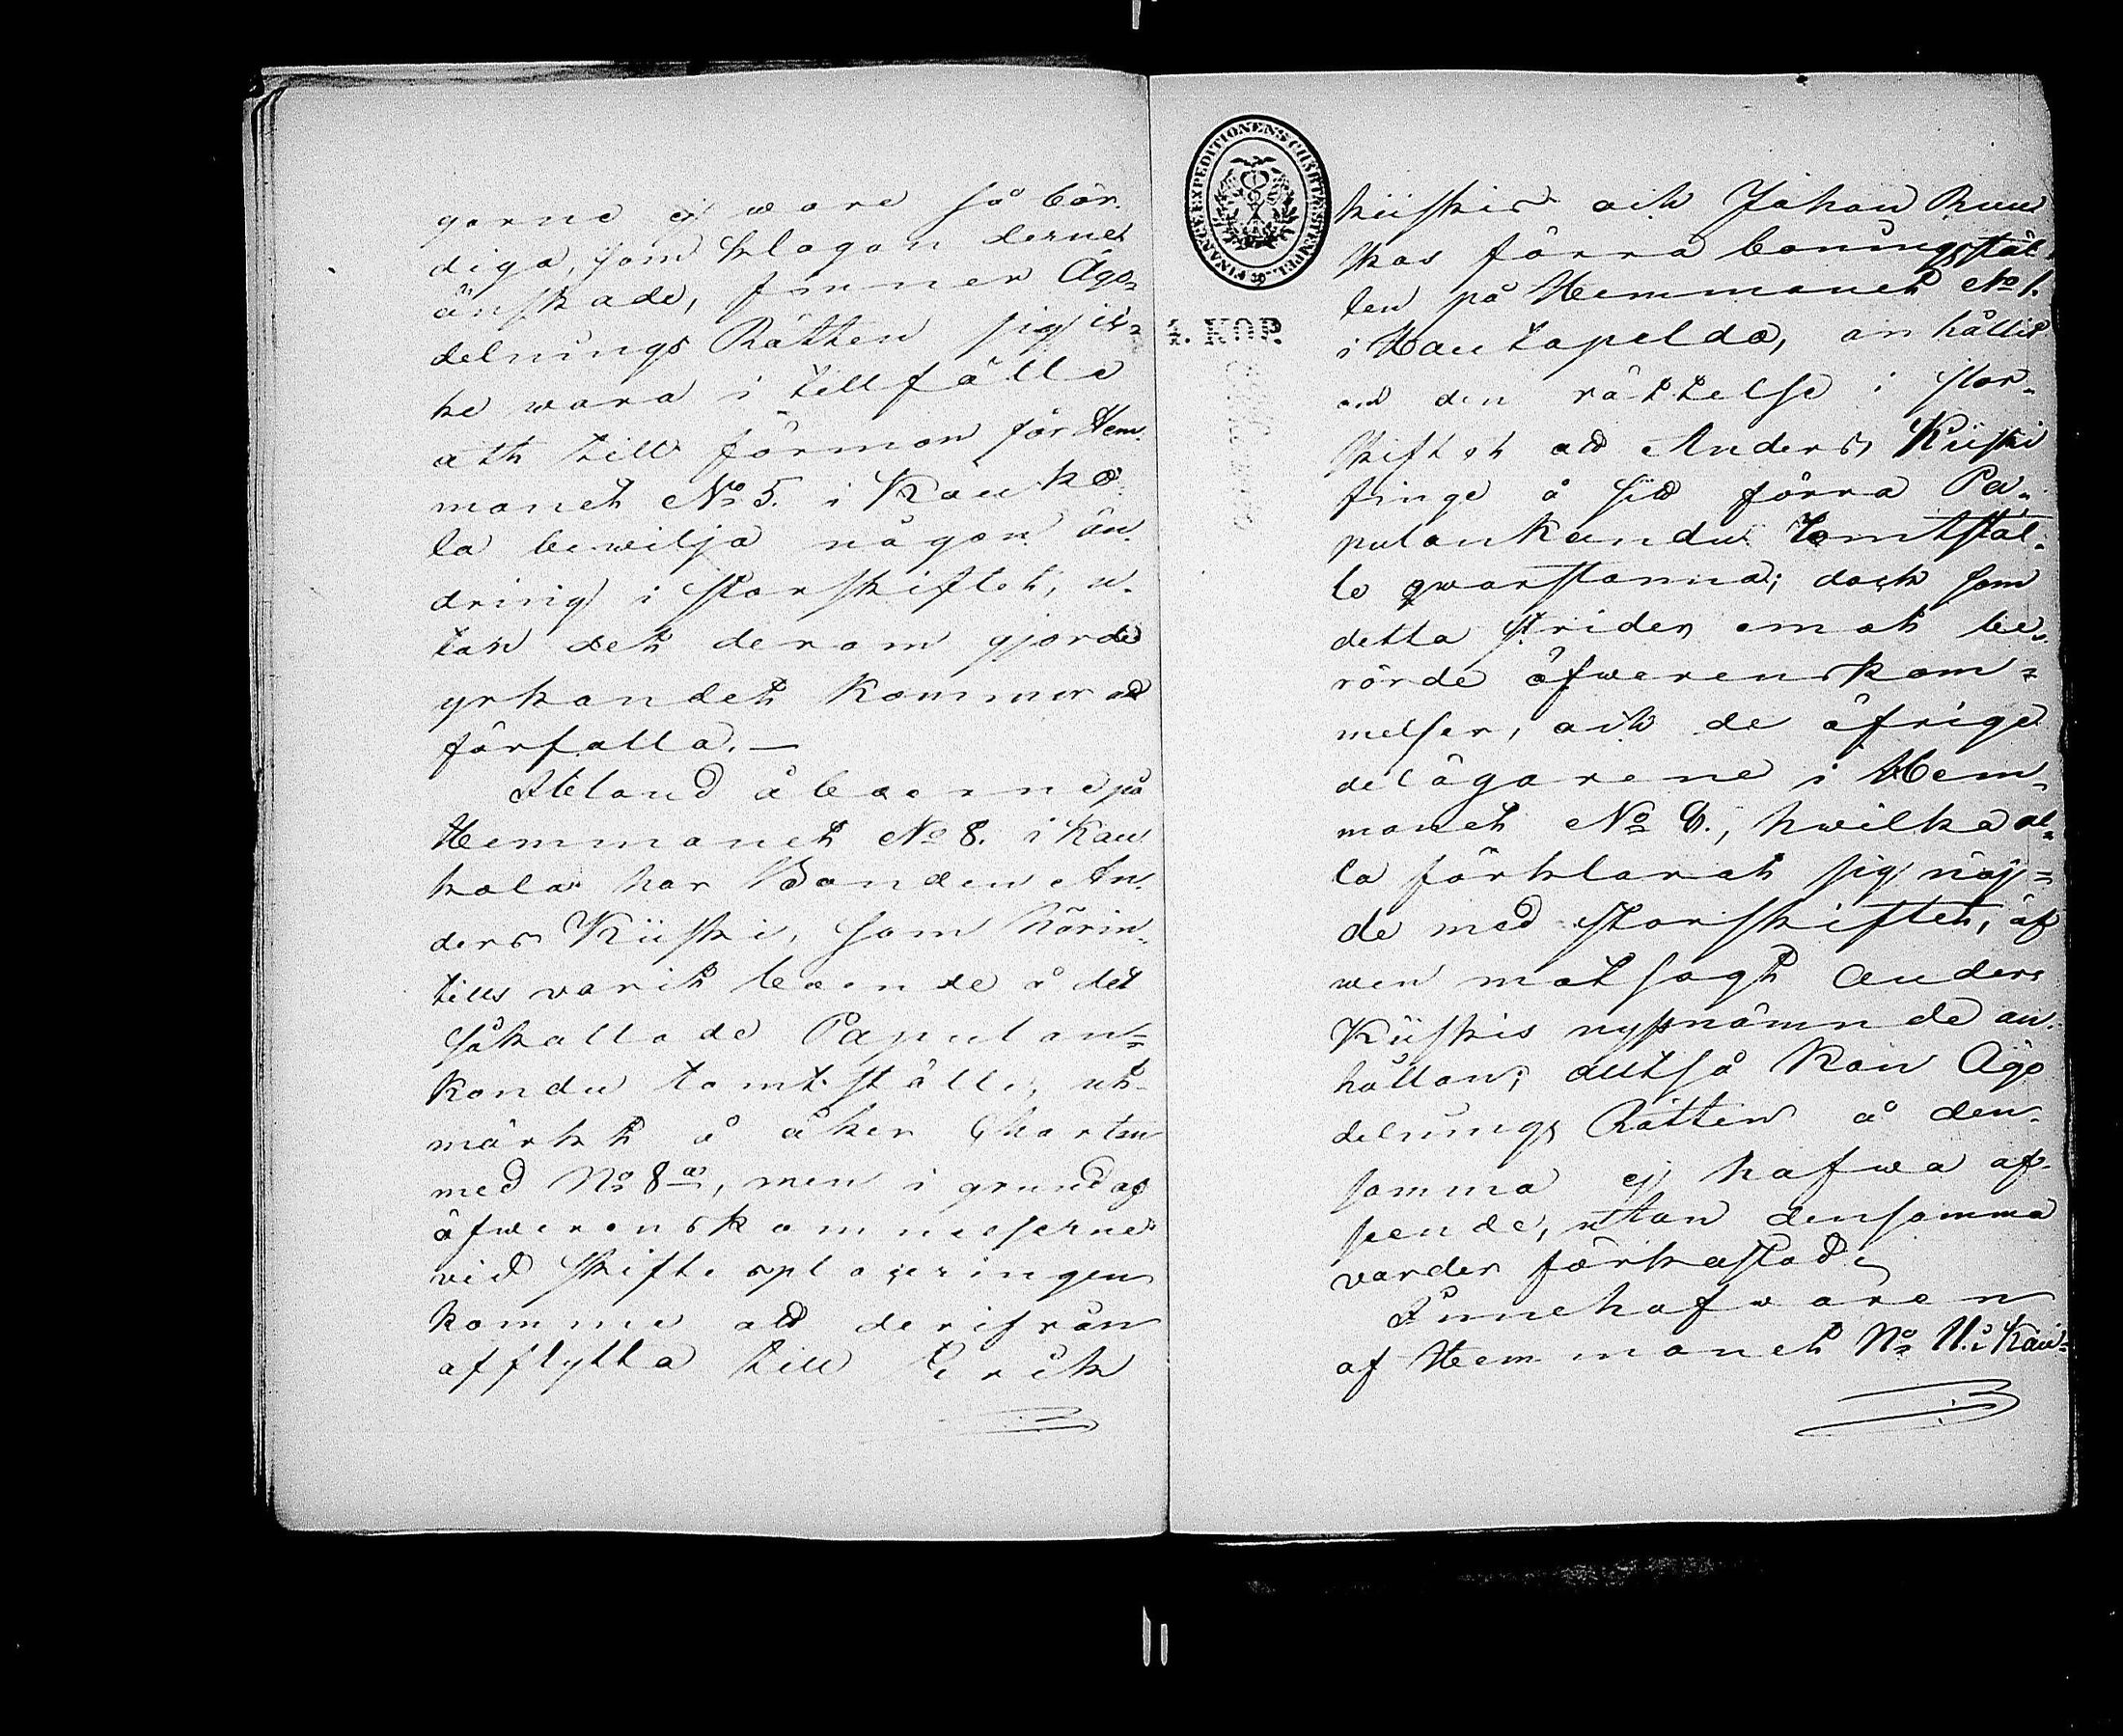 garne ej wore så bör-
diga, som klagan derne
önskade, finner Ägo-
delnings Rätten sig ic-
ke wara i tillfälle
ath till förmon för Hem-
maneth No 5. i Kauko-
la bewilja någon än-
dring i storskifteth, u-
tan deth derom gjorde
yrkandeth kommer att
förfalla. —
Ibland åboerne på
Hemmaneth No 8. i Kau-
kola har Bonden An-
ders Kiiski, som härin-
tills varith boende å det
såkallade Papulan-
kondu tomtställe, ut-
märkt å åker Chartan
med No 8 a, men i grund af
öfwerenskommelserne
vid skiftesplägeringen
komme att derifrån
afflytta till Erich
FINANCE EXPEDITIONENS CHARTÆ STEMPEL
4. KOP.
Kiiskis och Johan Ruu-
kas förra boningsstäl-
len på Hemmaneth No 1.
i Kautapelda, anhållit
om den rättelse i stor-
skifteth att Anders Kiiski
finge å sitt förra Pa-
pulankandu tomtstäl-
le qwarstanna; dock som
detta strider emoth be-
rörde öfwerenskom-
melser, och de öfrige
delägarene i Hem-
maneth No 8., hwilka al-
la förklarath sig nöj-
de med storskifteth, äf-
wen motsagt Anders
Kiiskis nyssnämnde an-
hållan; alltså kan Ägo-
delnings Rätten å den-
samma ej hafwa af-
seende, utan densamma
varder förkastad.
Innehafwaren
af Hemmaneth No 11. i Kau-